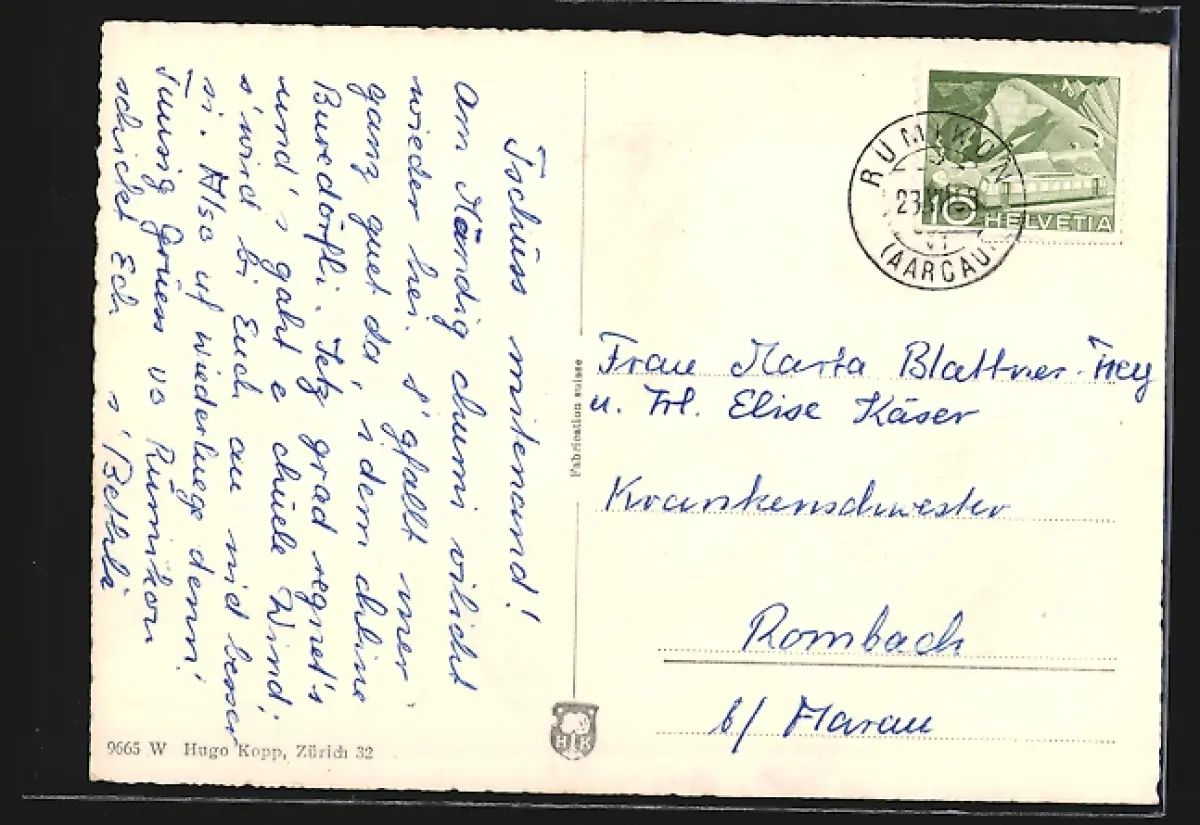 Tschüss mitenand!
Am Mändig chumi vilicht
wieder hei. S'gfallt mer
ganz guet da, i dem chline
Buredörfli. Jetz grad regnet's
und's gaht e chüele Wind;
s'wird bi Euch au nid besser
si. Also uf Wiederluege denn!
Tuusig Grüess vo Rümikon
schickt Ech s'Bethli
Fabrication suisse
9665 W Hugo Kopp, Zürich 32
HK
RUMIKON
23
(AARGAU)
10 HELVETIA
Frau Marta Blattner-Frey
u. Frl. Elise Käser
Krankenschwester
Rombach
b/ Aarau